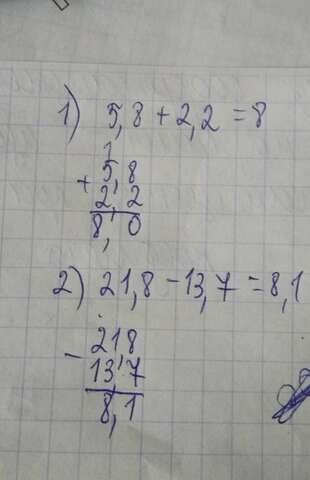 1) 5,8 + 2,2 = 8
1
+ 5,8
2,2
8,0
2) 21,8 - 13,7 = 8,1
- 21,8
13,7
8,1